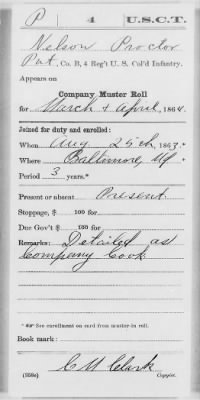 P | 4 | U.S.C.T.
Nelson Proctor
Pvt, Co. B, 4 Reg't U. S. Col'd Infantry.
Appears on
Company Muster Roll
for March & April, 1864.
Joined for duty and enrolled:
When Aug 25th, 1863.*
Where Baltimore, Md
Period 3 years.*
Present or absent Present
Stoppage, $ 100 for
Due Gov't $ 100 for
Remarks: Detailed as
Company Cook
* See enrollment on card from muster-in roll.
Book mark:
(358c) Copyist.